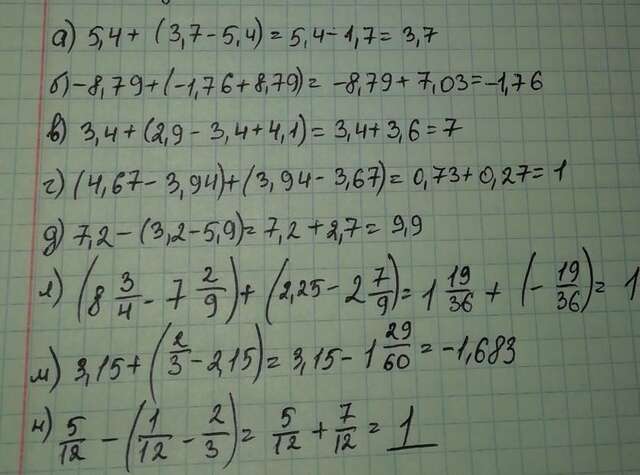 а) 5,4 + (3,7 - 5,4) = 5,4 - 1,7 = 3,7
б) -8,79 + (-1,76 + 8,79) = -8,79 + 7,03 = -1,76
в) 3,4 + (2,9 - 3,4 + 4,1) = 3,4 + 3,6 = 7
г) (4,67 - 3,94) + (3,94 - 3,67) = 0,73 + 0,27 = 1
д) 7,2 - (3,2 - 5,9) = 7,2 + 2,7 = 9,9
л) (8 3/4 - 7 2/9) + (2,25 - 2 7/9) = 1 19/36 + (- 19/36) = 1
м) 3,15 + (2/3 - 2,15) = 3,15 - 1 29/60 = -1,683
н) 5/12 - (1/12 - 2/3) = 5/12 + 7/12 = 1